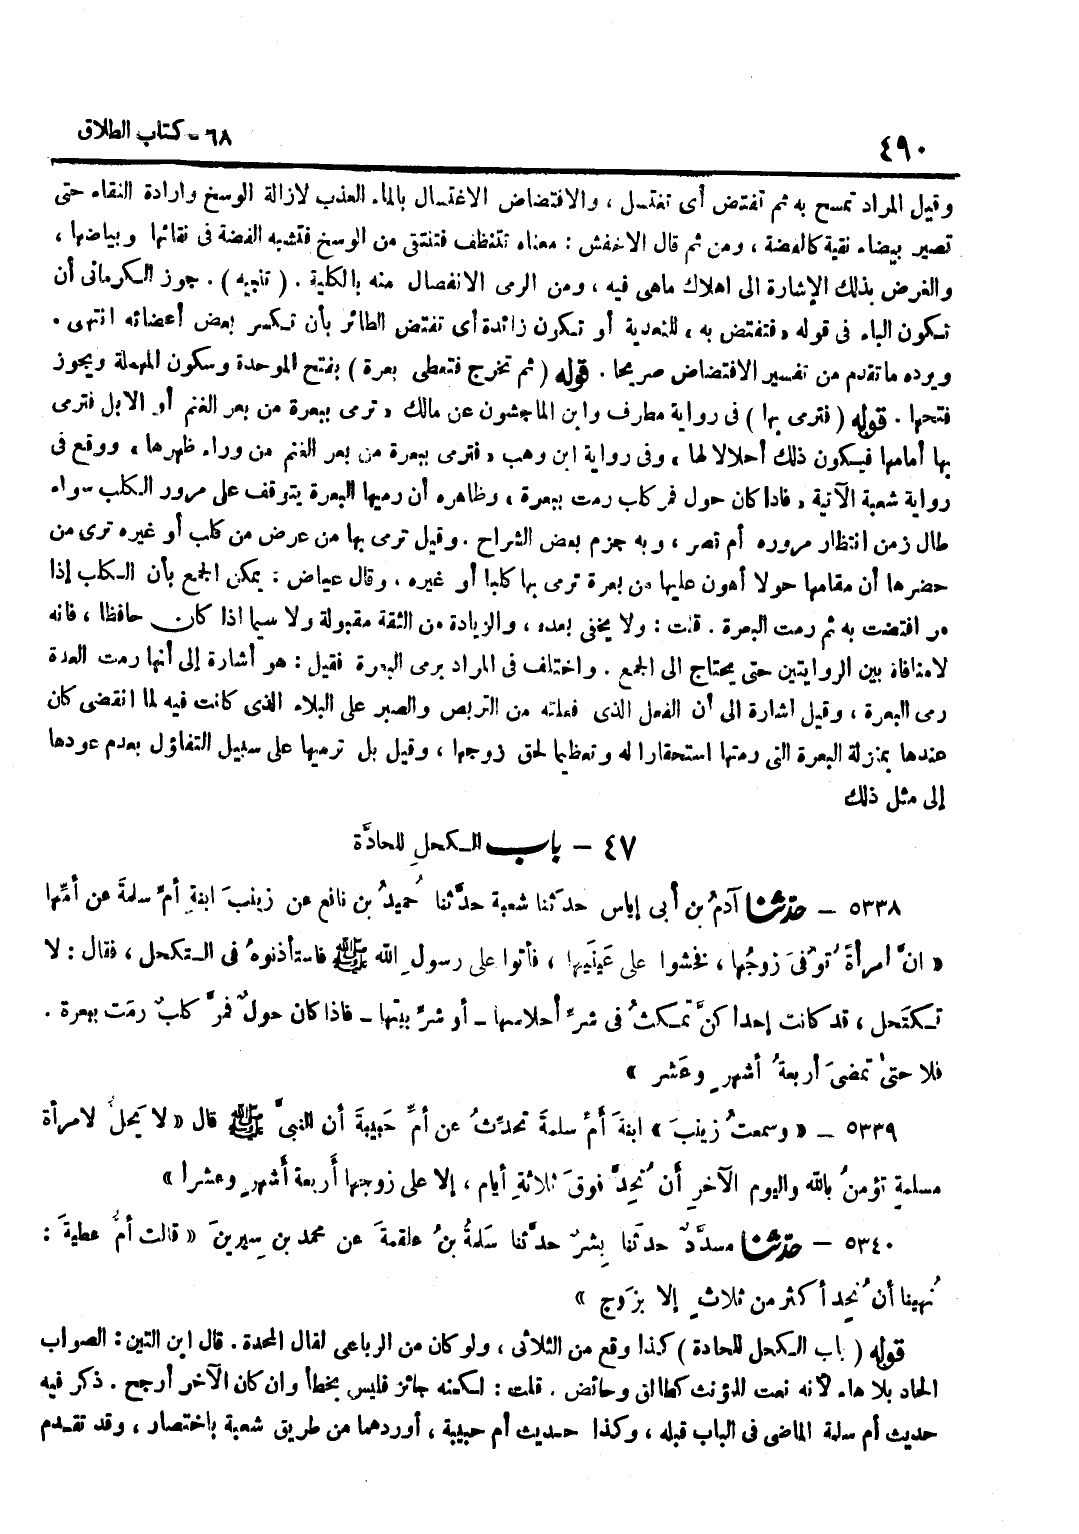 ٤٩٠
٦٨ - كتاب الطلاق
وقيل المراد تمسح به ثم تفتض أى تغتسل ، والافتضاض الاغتسال بالماء العذب لازالة الوسخ وارادة النقاء حتى
تصير بيضاء نقية كالفضة ، ومن ثم قال الاخفش : معناه تتنظف فتنتقى من الوسخ فتشبه الفضة فى نقائها وبياضها ،
والغرض بذلك الإشارة الى اهلاك ماهى فيه ، ومن الرمى الانفصال منه بالكلية . ( تنبيه ) . جوز الكرمانى أن
تكون الباء فى قوله « فتفتض به » للتعدية أو تكون زائدة أى تفتض الطائر بأن تكسر بعض أعضائه انتهى .
ويرده ماتقدم من تفسير الافتضاض صريحا . قوله ( ثم تخرج فتعطى بعرة ) بفتح الموحدة وسكون المهملة ويجوز
فتحها . قوله ( فترمى بها ) فى رواية مطرف وابن الماجشون عن مالك « ترمى ببعرة من بعر الغنم أو الابل فترمى
بها أمامها فيكون ذلك أحلالا لها » وفى رواية ابن وهب « فترمى ببعرة من بعر الغنم من وراء ظهرها » ووقع فى
رواية شعبة الآتية « فاذا كان حول فمر كلب رمت ببعرة » وظاهره أن رميها البعرة يتوقف على مرور الكلب سواء
طال زمن انتظار مروره أم قصر ، وبه جزم بعض الشراح . وقيل ترمى بها من عرض من كلب أو غيره ترى من
حضرها أن مقامها حولا أهون عليها من بعرة ترمى بها كلبا أو غيره . وقال عياض : يمكن الجمع بأن الكلب إذا
مر افتضت به ثم رمت البعرة . قلت : ولا يخفى بعده ، والزيادة من الثقة مقبولة ولا سيما اذا كان حافظا ، فانه
لامنافاة بين الروايتين حتى يحتاج الى الجمع . واختلف فى المراد برمى البعرة فقيل : هو أشارة إلى أنها رمت العدة
رمى البعرة ، وقيل اشارة الى أن الفعل الذى فعلته من التربص والصبر على البلاء الذى كانت فيه لما انقضى كان
عندها بمنزلة البعرة التى رمتها استحقارا له وتعظيما لحق زوجها ، وقيل بل ترميها على سبيل التفاؤل بعدم عودها
إلى مثل ذلك
٤٧ - باب الكحلِ للحادَّة
٥٣٣٨ - حدثنا آدمُ بن أبى إياس حدثنا شعبة حدَّثنا حُميدُ بن نافع عن زينبَ ابنةِ أمِّ سلمةَ عن أمِّها
« انَّ أمرأةً تُوُفىَ زوجُها ، فخشوا على عَينَيها ، فأتوا على رسول الله ﷺ فاستأذنوهُ فى التكحل ، فقال : لا
تكتَحل ، قد كانت إحدا كنَّ تمكثُ فى شرِّ أحلاسها - أو شرِّ بيتها - فاذا كان حولٌ فمرَّ كلبٌ رمَت ببعرة .
فلا حتىٰ تمضىَ أربعةُ أشهرٍ وعَشر »
٥٣٣٩ - « وسمعتُ زينبَ » ابنةَ أمِّ سلمةَ تحدِّثُ عن أمِّ حَبيبةَ أن النبىَّ ﷺ قال « لا يَحلُّ لامرأة
مسلمةٍ تؤمنُ بالله واليوم الآخرِ أن تُحِدَّ فوقَ ثلاثةِ أيام ، إلا على زوجها أربعة أشهرٍ وعشرا »
٥٣٤٠ - حدثنا مسدَّدٌ حدثنا بِشرٌ حدَّثنا سَلمةُ بنُ علقمةَ عن محمد بن سِيرينَ « قالت أمُّ عطيةَ :
نُهينا أن نُحِد أكثر من ثلاثٍ إلا بزَوجٍ »
قوله ( باب الكحل للحادة ) كذا وقع من الثلاثى ، ولو كان من الرباعى لقال المحدة . قال ابن التين : الصواب
الحاد بلا هاء لأنه نعت للمؤنث كطالق وحائض . قلت : لكنه جائز فليس بخطأ وان كان الآخر أرجح . ذكر فيه
حديث أم سلمة الماضى فى الباب قبله ، وكذا حديث أم حبيبة ، أوردهما من طريق شعبة باختصار ، وقد تقدم